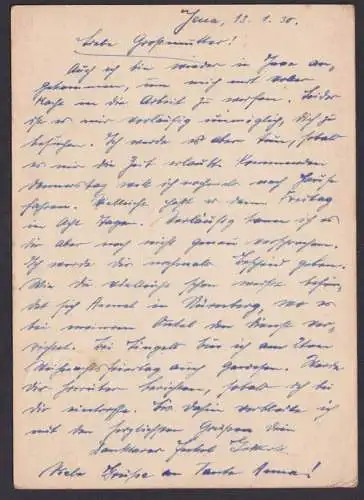 Jena, 13. 1. 30.
Liebe Großmutter!
Auch ich bin wieder in Jena an-
gekommen, um mich mit voller
Macht in die Arbeit zu werfen. Leider
ist es mir vorläufig unmöglich, Dich zu
besuchen. Ich werde es aber tun, sobald
es mir die Zeit erlaubt. Kommenden
Donnerstag will ich nochmals nach Hause
fahren. Vielleicht paßt es dann Freitag
in acht Tagen. Vorläufig kann ich es
Dir aber noch nicht genau versprechen.
Ich werde Dir nochmals Bescheid geben.
Wie Du vielleicht schon weißt, befin-
det sich in Nürnberg, wo er
bei meinem Onkel den Dienst ver-
sieht. Bei bin ich am IIten
Weihnachtsfeiertag auch gewesen. Werde
Dir hierüber berichten, sobald ich bei
Dir eintreffe. Bis dahin verbleibe ich
mit den herzlichsten Grüßen Dein
dankbarer
Viele Grüße an Tante Anna!